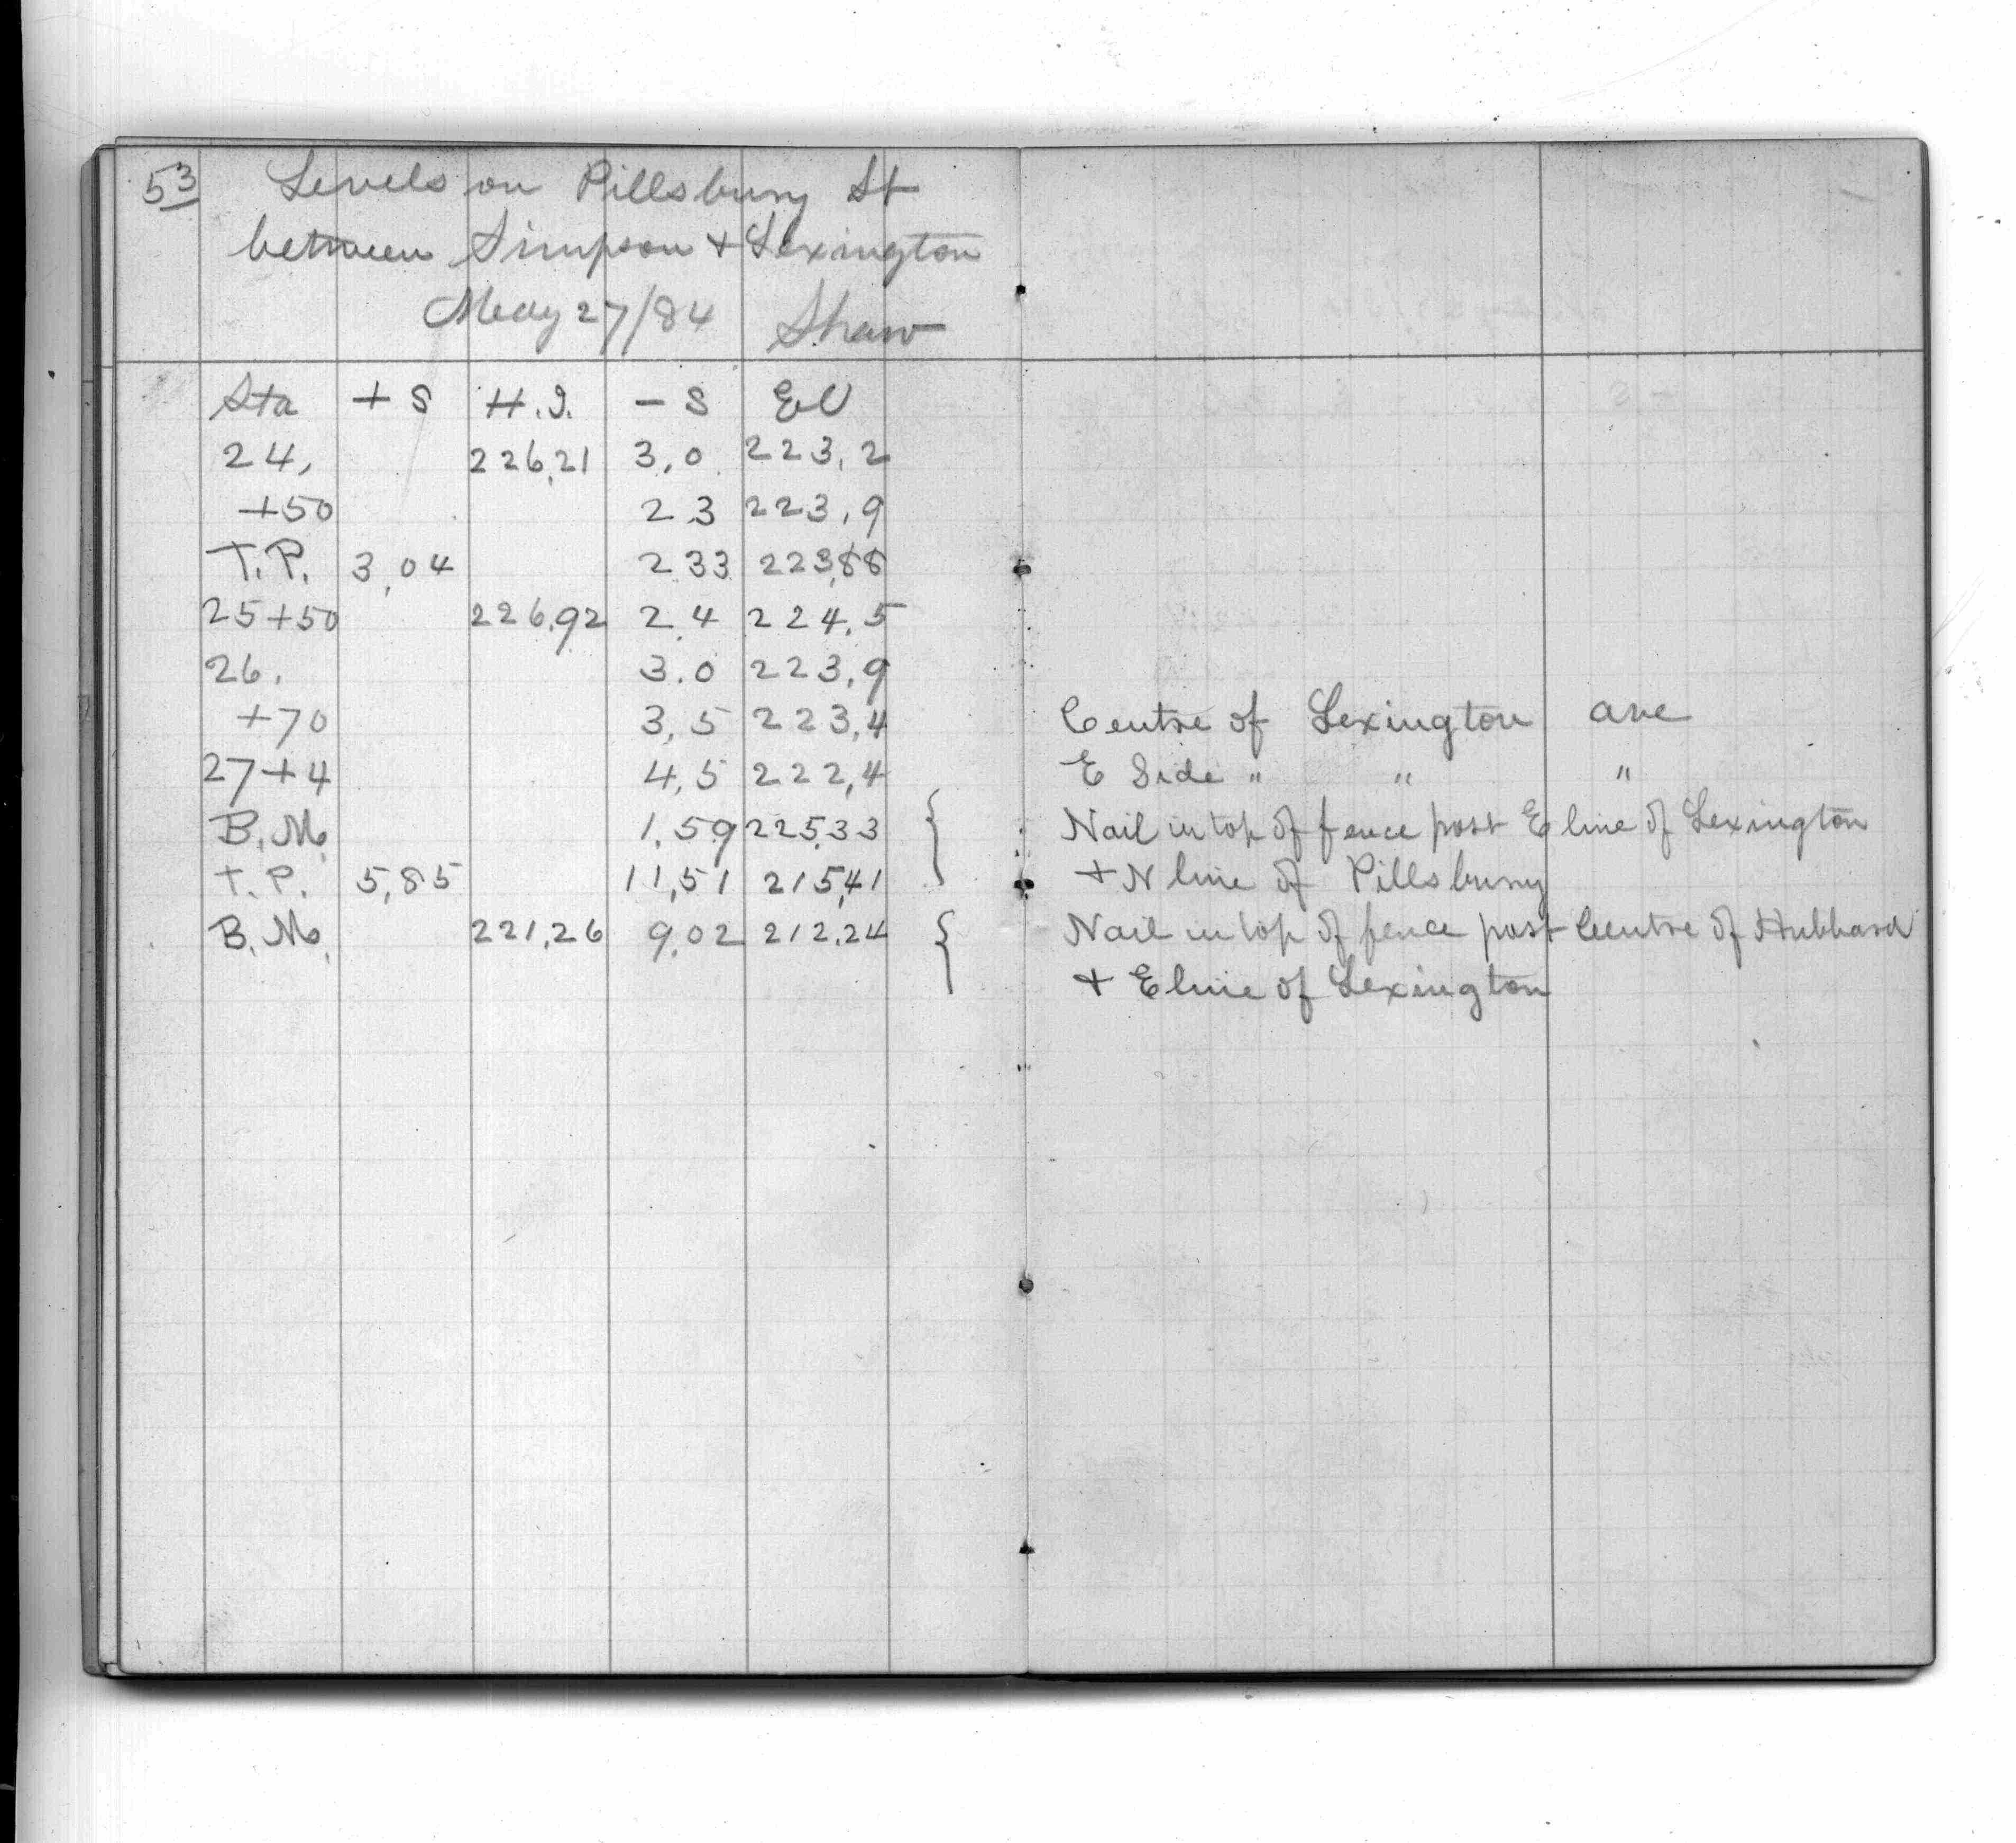 53 Levels on Pillsbury St
between Simpson + Lexington
May 27/84 Shaw
Sta + S H.I. - S El
24, 226,21 3,0 223,2
+50 2.3 223,9
T.P. 3,04 2 33 223,88
25+50 226,92 2.4 224,5
26. 3.0 223,9
+70 3,5 223,4 Centre of Lexington ave
27+4 4,5 222,4 E Side " " "
B.M. 1,59 225,33 { Nail in top of fence post E line of Lexington
T.P. 5,85 11,51 215,41 + N line of Pillsbury
B.M. 221,26 9,02 212,24 { Nail in top of fence post Centre of Hubbard
+ E line of Lexington